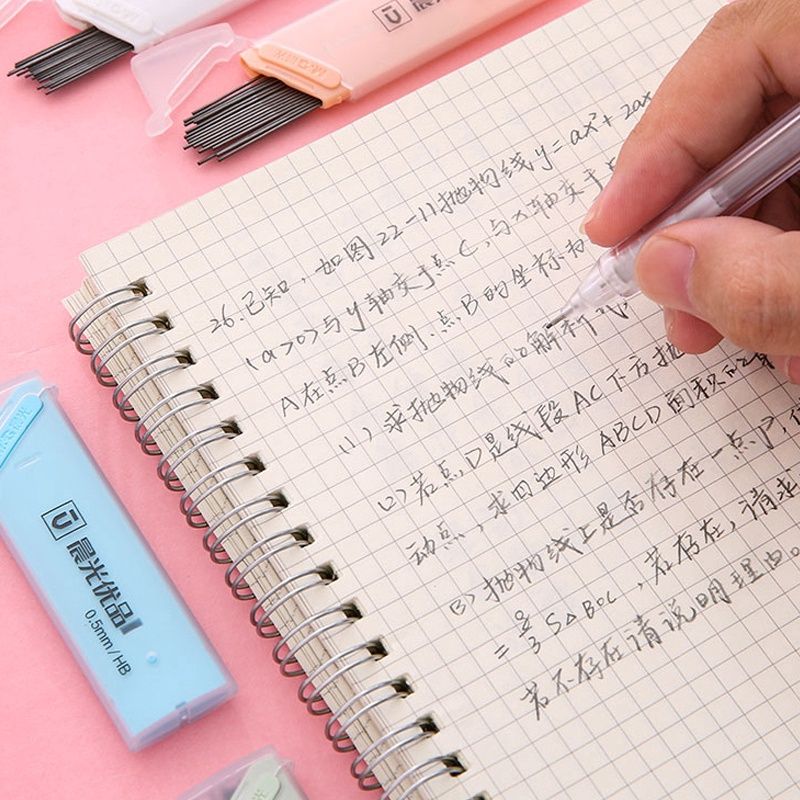 26. 已知，如图22-11抛物线y=ax²+2ax
(a>0)与y轴交于点C，与x轴交于
A在点B左侧.点B的坐标为
(1) 求抛物线的解析式
(2) 若点D是线段AC下方抛
动点，求四边形ABCD面积的
(3) 抛物线上是否存在一点P，
S△BOC，若存在，请求
若不存在请说明理由。
晨光优品
0.5mm/HB
晨光